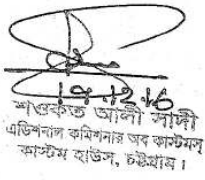 ১৭.১২.১৬
শওকত আলী সাদী
এডিশনাল কমিশনার অব কাস্টমস্
কাস্টম হাউস, চট্টগ্রাম।